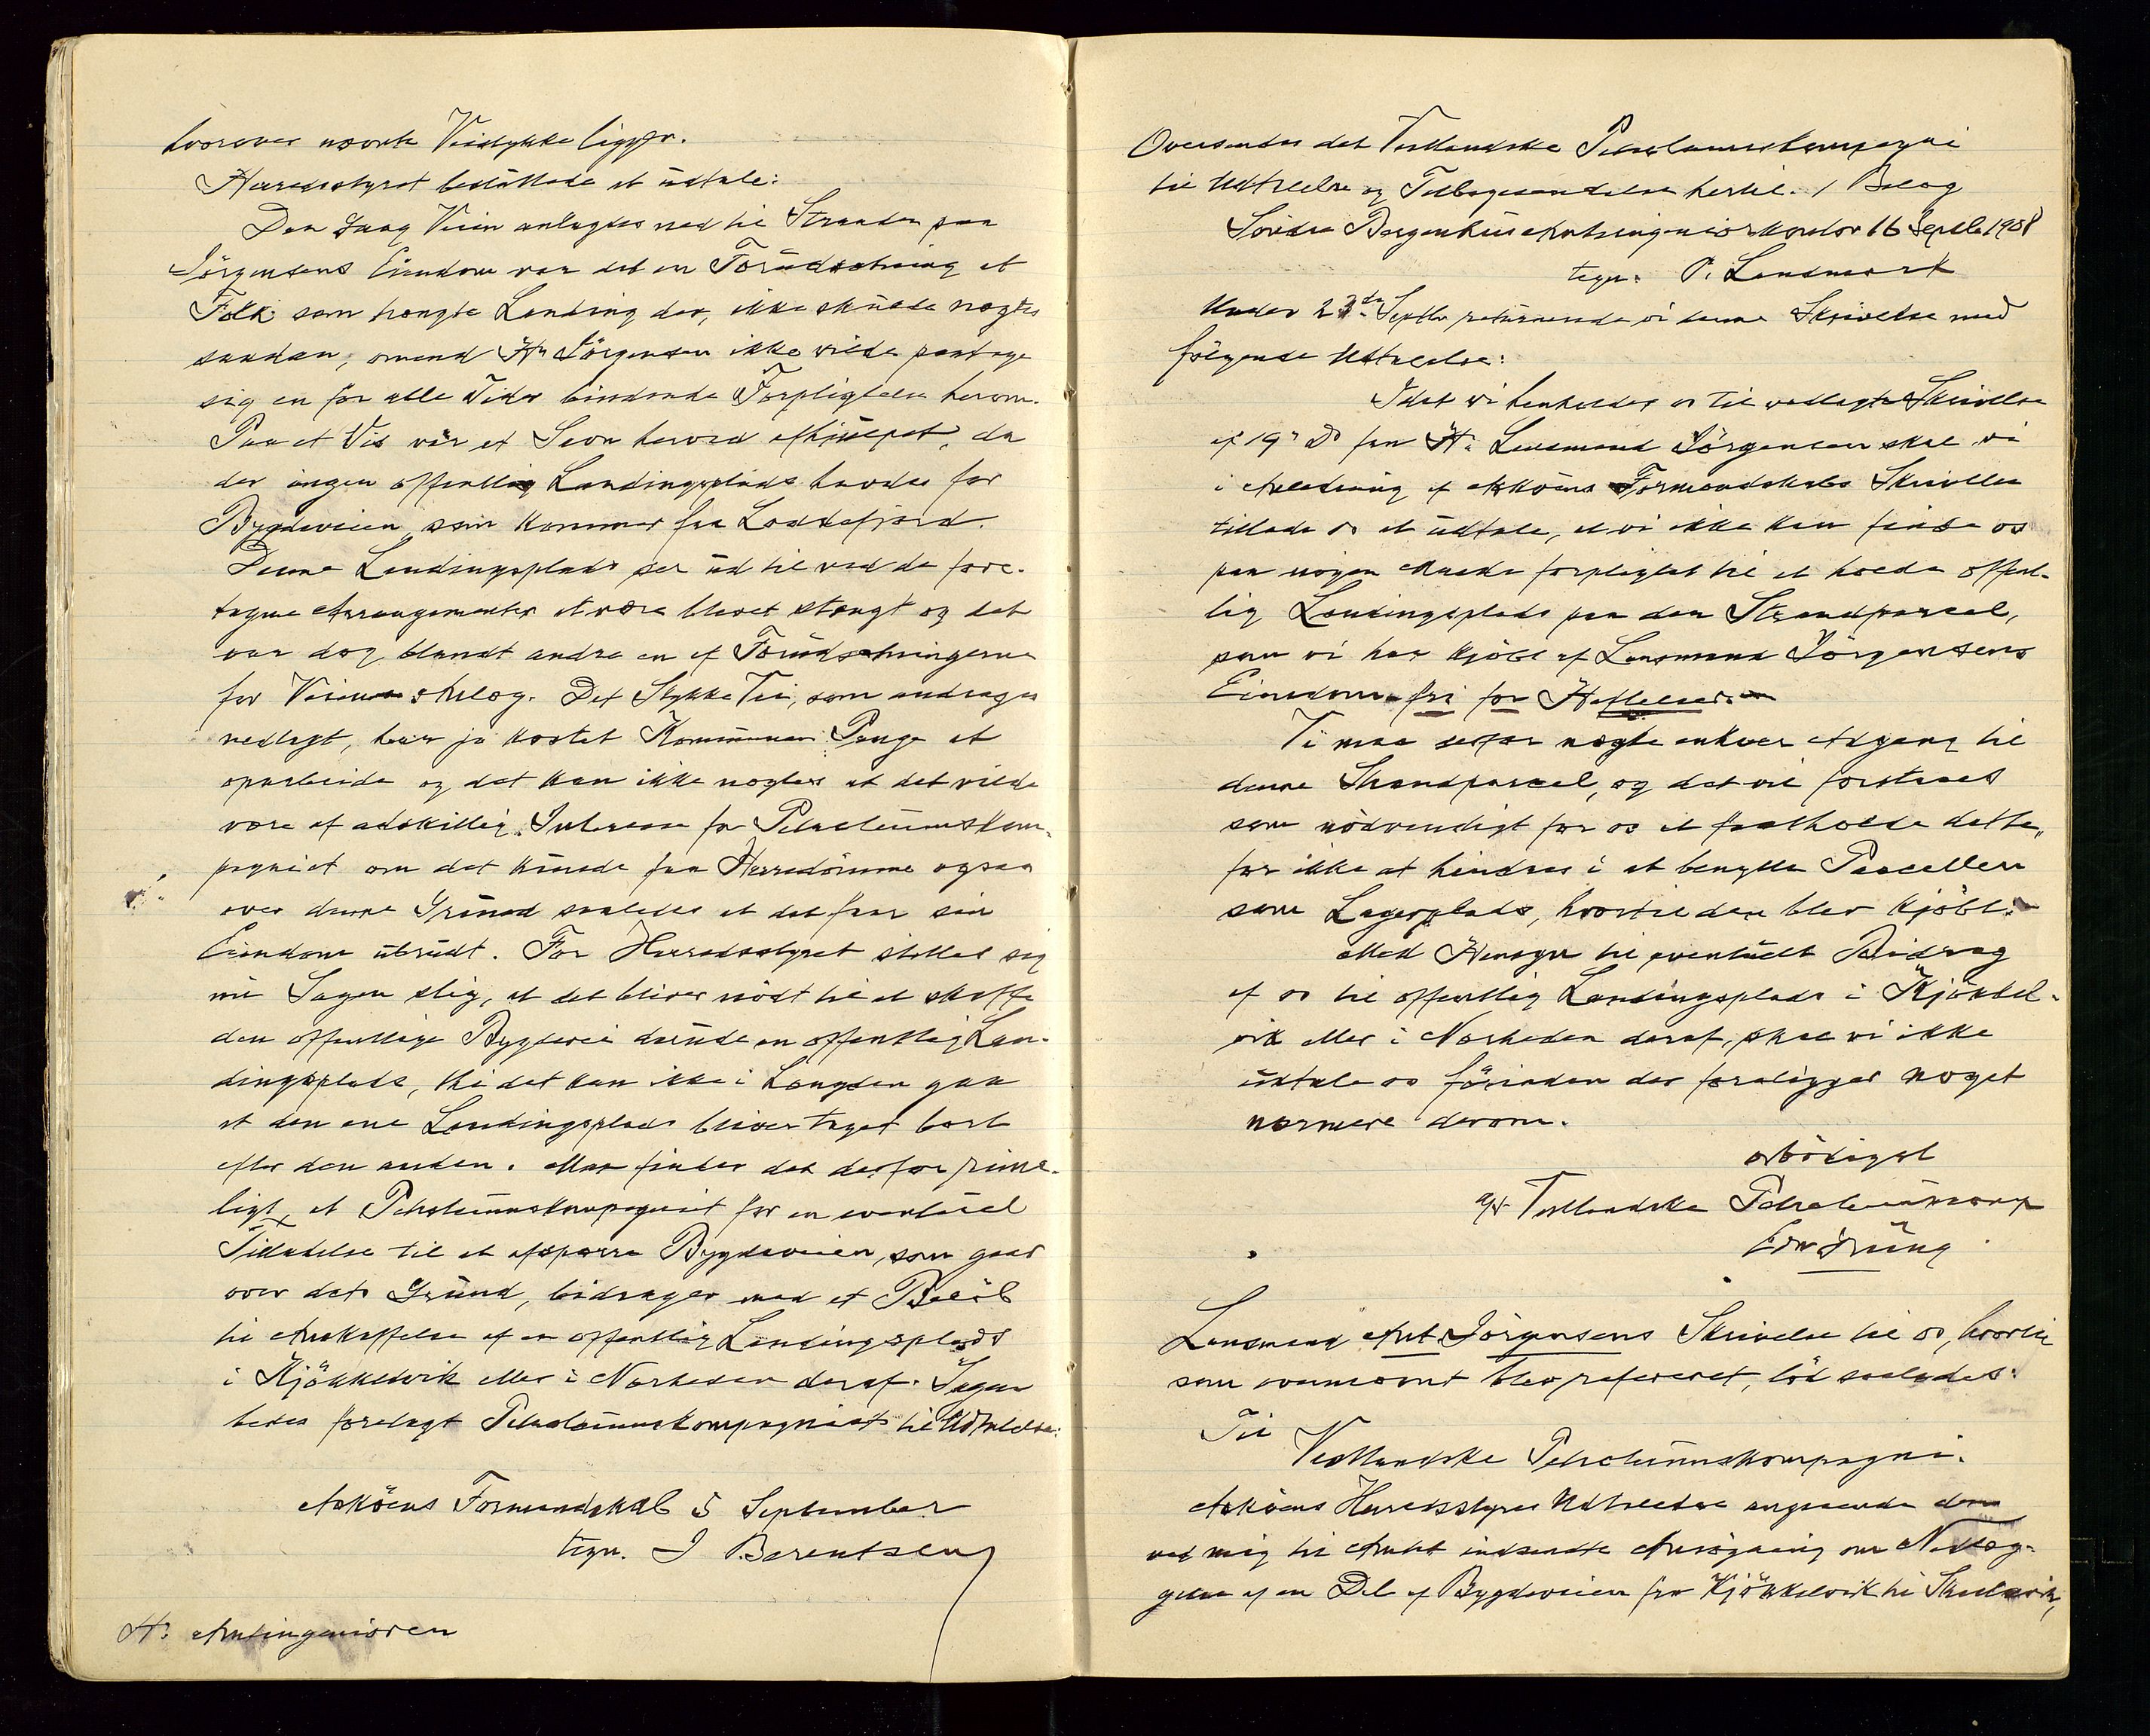 hvorover nævnte Veistykke ligger.
Herredsstyret besluttede at udtale:
Den Gang Veien anlagdes ned til Stranden paa
Jörgensens Eiendom var det en Forudsætning at
Folk som trængte Landing der, ikke skulde nægtes
saadan, omend Hr Jörgensen ikke vilde paatage
sig en for alle Tider bindende Forpligtelse herom.
Paa et Vis var et Savn herved afhjulpet, da
der ingen offentlig Landingsplads havdes for
Bygdeveien som kommer fra Loddefjord.
Denne Landingsplads ser ud til ved de fore-
tagne Arrangementer at være blevet stængt og det
var dog blandt andre en af Forudsætningerne
for Veiens Anlæg. Det Stykke Vei, som andrages
nedlagt, har jo kostet Kommunen Penge at
oparbeide og det kan ikke nægtes at det vilde
være af adskillig Interesse for Petroleumskom-
pagniet om det kunde faa Herredömme ogsaa
over denne Grund saaledes at det faar sin
Eiendom ubrudt. For Herredsstyret stiller sig
nu Sagen slig, at det bliver nödt til at skaffe
den offentlige Bygdevei derude en offentlig Lan-
dingsplads, thi det kan ikke i Længden gaa
at den ene Landingsplads bliver taget bort
efter den anden. Man finder det derfor rime-
ligt, at Petroleumskompagniet for en eventuel
Tilladelse til at afspærre Bygdeveien, som gaar
over dets Grund, bidrager med et Belöb
til Anskaffelse af en offentlig Landingsplads
i Kjökkelvik eller i Nærheden deraf. Sagen
bedes forelagt Petroleumskompagniet til Udtalelse.
Asköens Formandskab 5 September
tegn. J Berentsen
Hr. Amtsingeniören
Oversendes det Vestlandske Petroleumskompagni
til Udtalelse og Tilbagesendelse hertil. 1 Bilag
Söndre Bergenhus Amtsingeniörkontor 16 Septbr 1908
tegn. P. Landmark
Under 23de Septbr returnerede vi denne Skrivelse med
fölgende Udtalelse:
Idet vi henholder os til vedlagte Skrivelse
af 19' ds fra Hr. Lensmand Jörgensen skal vi
i Anledning af Asköens Formandskabs Skrivelse
tillade os at udtale, at vi ikke kan finde os
paa nogen Maade forpligtet til at holde offent-
lig Landingsplads paa den Strandparcel,
som vi har kjöbt af Lensmand Jörgensens
Eiendom fri for Heftelser.
Vi maa derfor nægte enhver Adgang til
denne Strandparcel, og det vil forstaaes
som nödvendigt for os at fastholde dette,
for ikke at hindres i at benytte Parcellen
som Lagerplads, hvortil den blev kjöbt.
Med Hensyn til eventuelt Bidrag
af os til offentlig Landingsplads i Kjökkel-
vik eller i Nærheden deraf, skal vi ikke
udtale os förinden der foreligger noget
nærmere derom.
ærbödigst
Vestlandske Petroleumscomp
Lensmand Ant. Jörgensens Skrivelse til os, hvortil
som ovennævnt blev refereret, löd saaledes:
Til
Vestlandske Petroleumskompagni.
Asköens Herredsstyres Udtalelse angaaende den
ved mig til Amtet indsendte Ansögning om Nedlæg-
gelse af en Del af Bygdeveien fra Kjökkelvik til